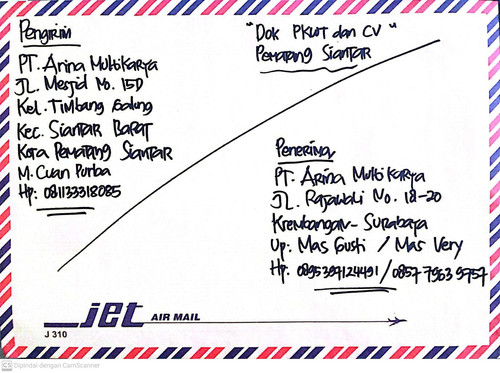 Pengirim
PT. Arina Multikarya
JL. Mesjid No. 15D
Kel. Timbang Galung
Kec. Siantar Barat
Kota Pematang Siantar
M. Cuan Purba
Hp: 081133318085
"Dok PKWT dan CV"
Pematang Siantar
Penerima
PT. Arina Multikarya
JL. Rajawali No. 18-20
Krembangan - Surabaya
Up: Mas Gusti / Mas Very
Hp: 0895397124491 / 0857 7963 9757
jet AIR MAIL
J 310
CS Dipindai dengan CamScanner